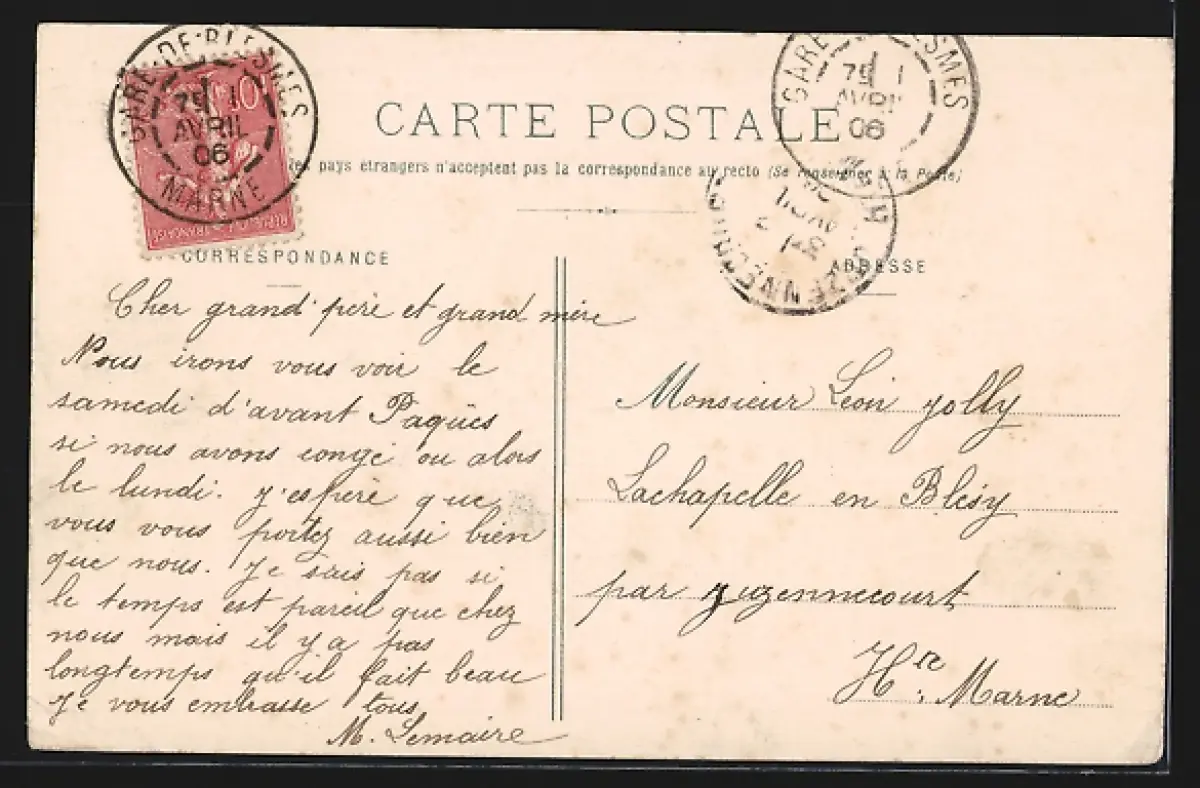 GARE-DE-BLESMES
AVRIL
06
MARNE
10
REPUBLIQUE FRANÇAISE
GARE DE BLESMES
AVRIL
06
CARTE POSTALE
les pays étrangers n'acceptent pas la correspondance au recto (Se renseigner à la Poste)
CORRESPONDANCE
ADRESSE
Cher grand'père et grand mère
Nous irons vous voir le
samedi d'avant Paques
si nous avons congé ou alors
le lundi. J'espère que
vous vous portez aussi bien
que nous. Je sais pas si
le temps est pareil que chez
nous mais il y a pas
longtemps qu'il fait beau
Je vous embrasse tous
M. Lemaire
Monsieur Léon Jolly
Lachapelle en Blésy
par Juzennecourt
Hte Marne